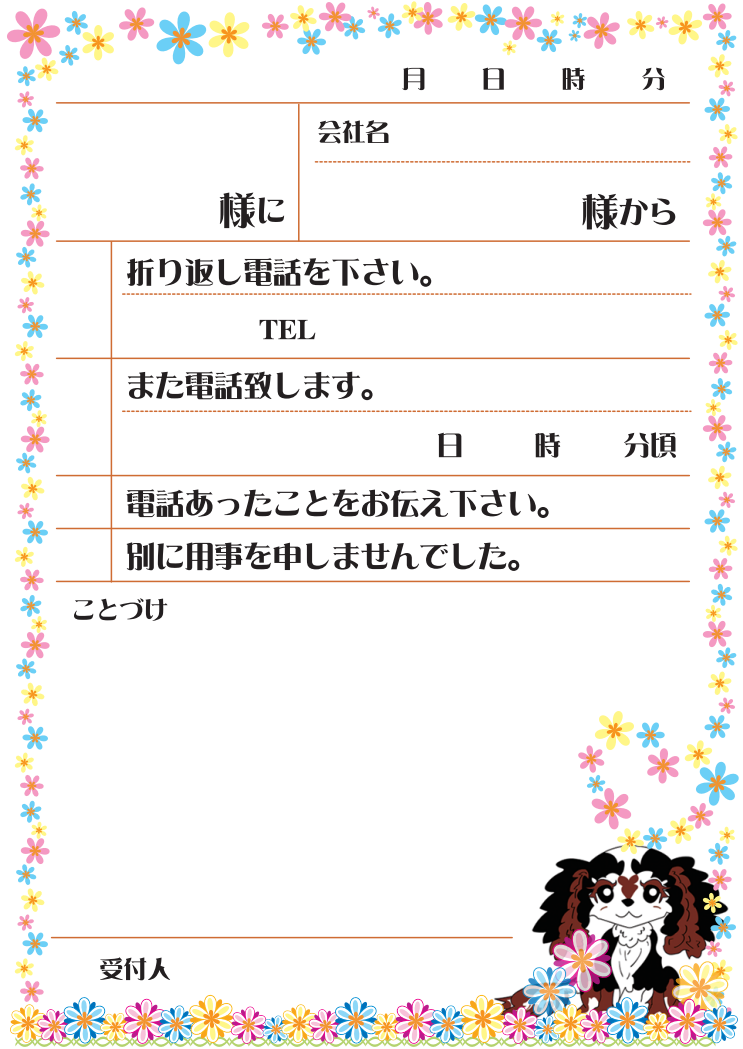 月 日 時 分
会社名
様に 様から
折り返し電話を下さい。
TEL
また電話致します。
日 時 分頃
電話あったことをお伝え下さい。
別に用事を申しませんでした。
ことづけ
受付人